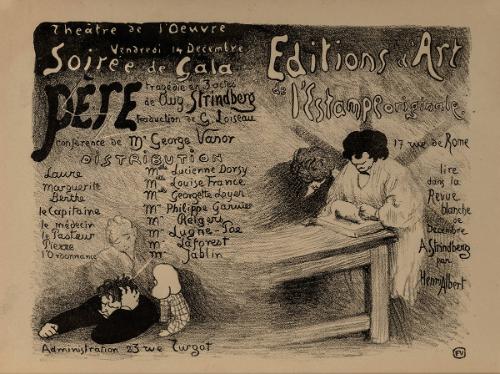 Théâtre de l'Oeuvre
Vendredi 14 Décembre
Soirée de Gala
PÈRE
tragédie en 3 actes
de Aug Strindberg
traduction de G. Loiseau
conférence de Mr George Vanor
DISTRIBUTION
Laure Mme Lucienne Dorsy
Marguerite Mme Louise France
Berthe Mlle Georgette Loyer
le Capitaine Mr Philippe Garnier
le médecin Mr Reigers
le Pasteur Mr Lugné-Poe
Pierre Mr Laforest
l'Ordonnance Mr Jablin
Administration 23 rue Turgot
Editions d'Art
de l'Estampe originale
17 rue de Rome
lire
dans la
Revue
blanche
de
Décembre
A. Strindberg
par
Henri Albert
FV